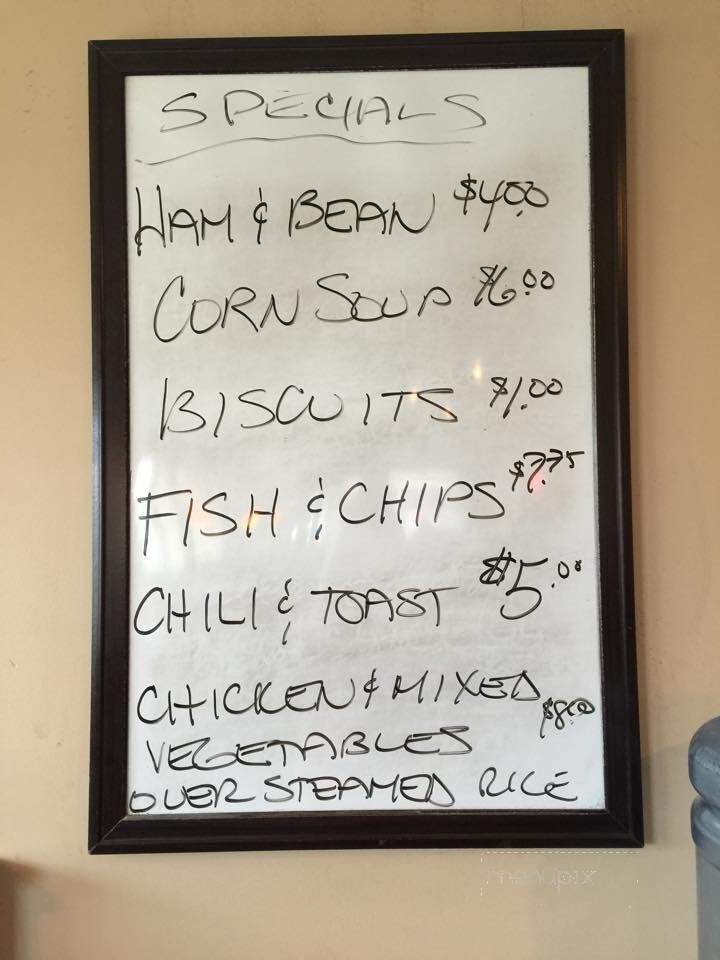 SPECIALS
HAM & BEAN $4.00
CORN SOUP $6.00
BISCUITS $1.00
FISH & CHIPS $7.75
CHILI & TOAST $5.00
CHICKEN & MIXED
VEGETABLES $8.00
OVER STEAMED RICE
menupix